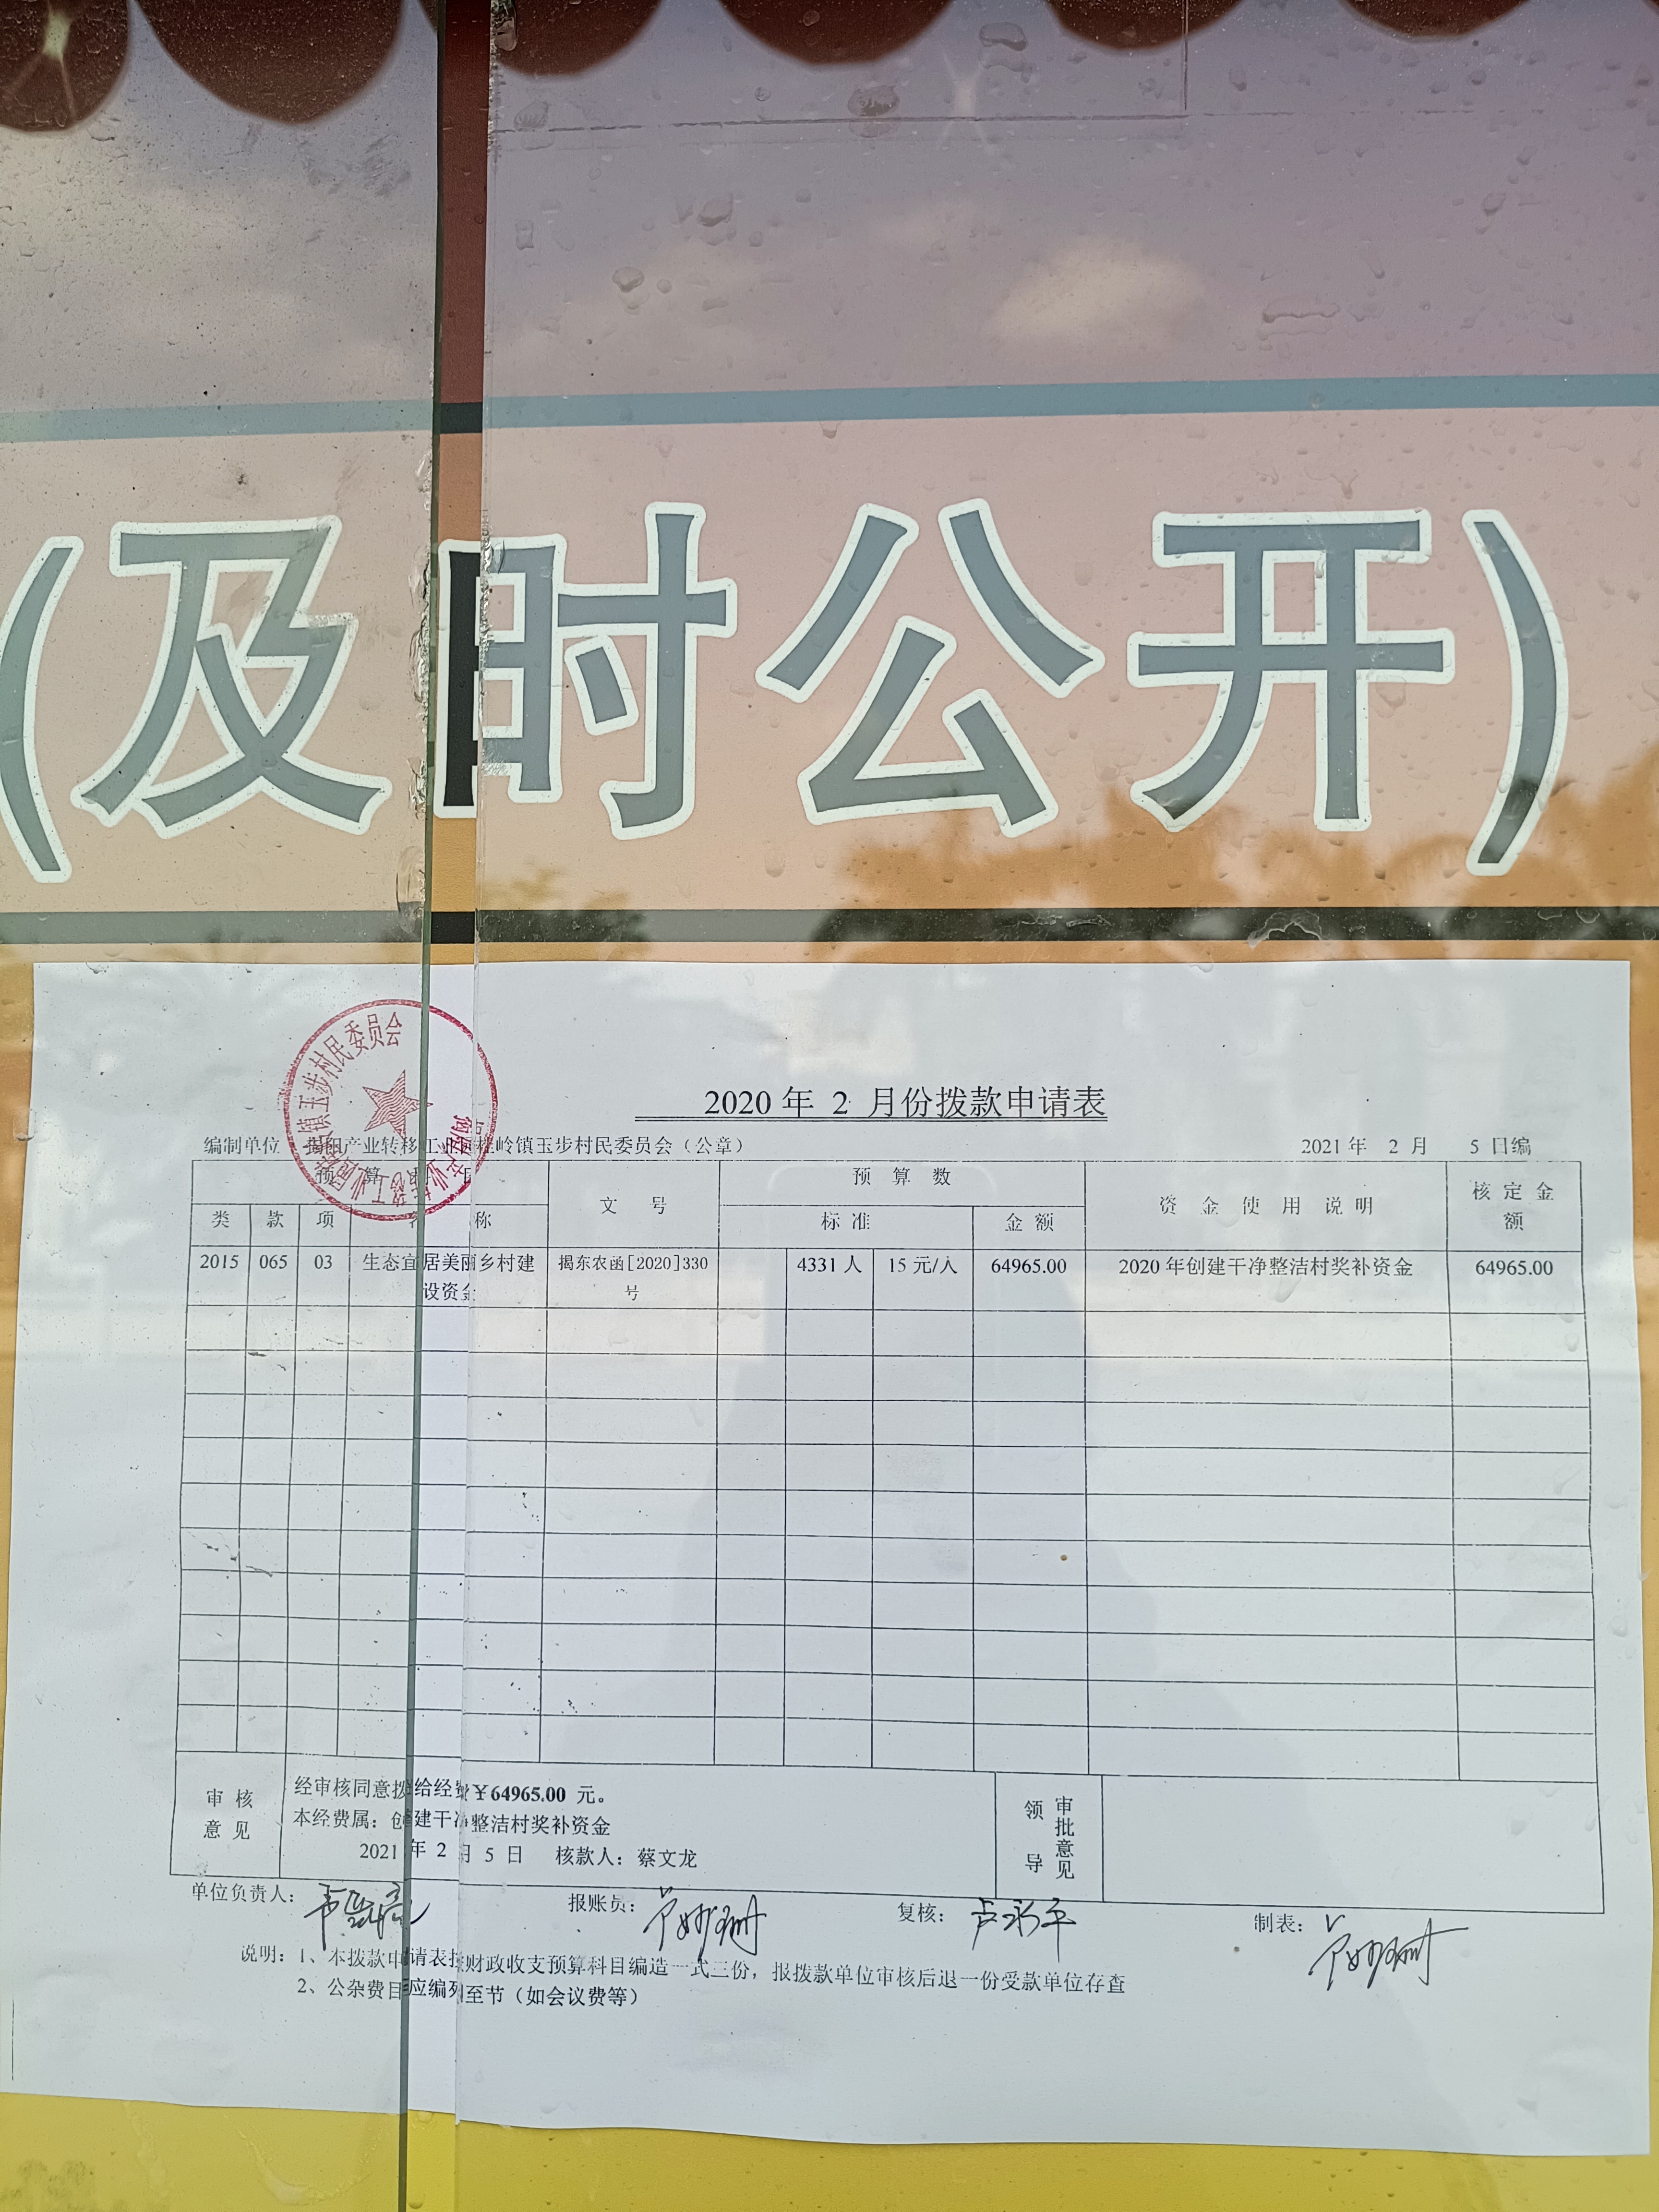 (及时公开)
2020 年 2 月份拨款申请表
编制单位 揭阳产业转移工业园桂岭镇玉步村民委员会（公章）
2021 年 2 月 5 日编
预 算
文 号
预 算 数
资 金 使 用 说 明
核 定 金 额
类 款 项 名 称
标 准
金 额
2015 065 03 生态宜居美丽乡村建设资金 揭东农函[2020]330号 4331 人 15 元/人 64965.00 2020 年创建干净整洁村奖补资金 64965.00
审 核 意 见
经审核同意拨给经费￥64965.00 元。
本经费属：创建干净整洁村奖补资金
2021 年 2 月 5 日 核款人：蔡文龙
领 导 审批意见
单位负责人：
报账员：
复核：
制表：
说明：1、本拨款申请表按财政收支预算科目编造一式三份，报拨款单位审核后退一份受款单位存查
2、公杂费目应编列至节（如会议费等）